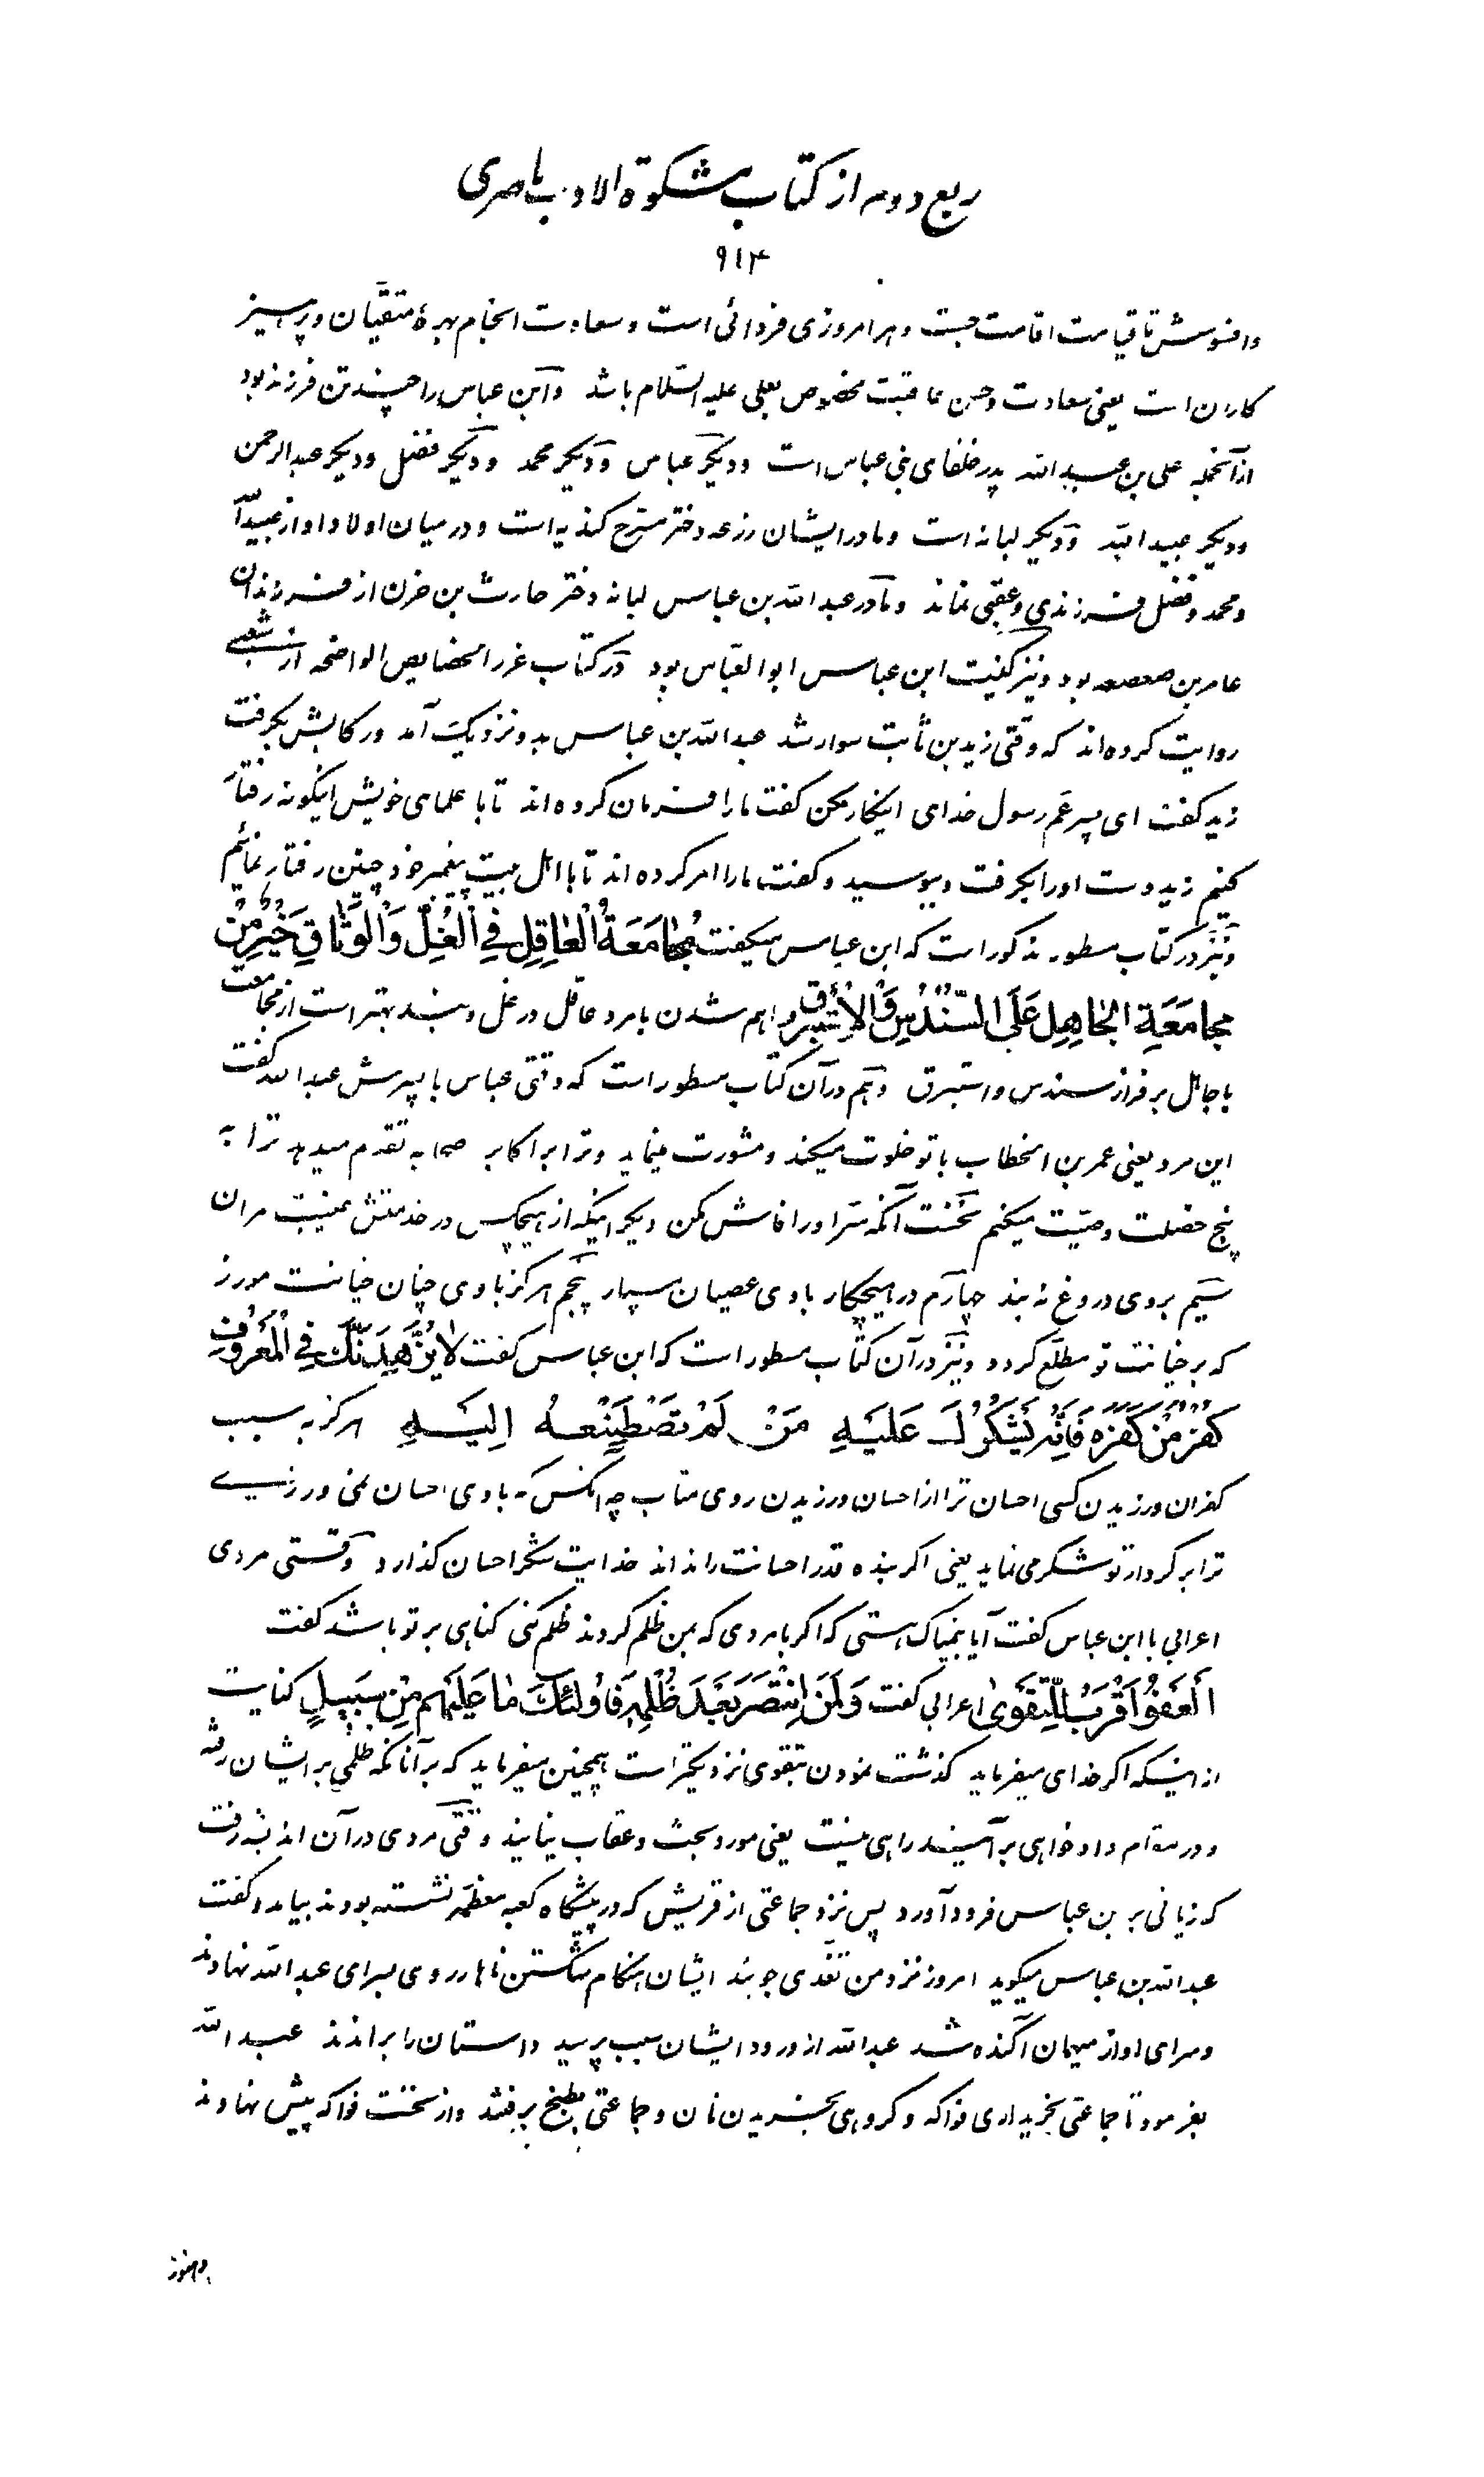 ربع دوم از کتاب مشکوة الادب ناصری
۹۱۴
وافسوسش تا قیامت اقامت جست وهر امروزی فردائی است وسعادت انجام بهرهٔ متقیّان و پرهیز
کاران است یعنی سعادت وحسن عاقبت مخصوص بعلی علیه السّلام باشد وابن عباس را چند تن فرزند بود
از آنجمله علی بن عبد الله پدر خلفای بنی عباس است ودیگر عباس ودیگر محمد ودیگر فضل ودیگر عبد الرحمن
ودیگر عبید الله ودیگر لبانه است ومادر ایشان زرعه دختر مشرح کندیه است ودر میان اولاد او از عبید الله
ومحمد وفضل فرزندی وعقبی نماند ومادر عبد الله بن عباس لبانه دختر حارث بن حزن از فرزندان
عامر بن صعصعه بود ونیز کنیت ابن عباس ابو العبّاس بود در کتاب غرر الخصایص الواضحه از شعبی
روایت کرده اند که وقتی زید بن ثابت سوار شد عبد الله بن عباس بدو نزدیک آمد ورکابش بگرفت
زید گفت ای پسر عم رسول خدای اینکار مکن گفت ما را فرمان کرده اند تا با علمای خویش اینگونه رفتار
کنیم زید دست او را بگرفت وببوسید وگفت ما را امر کرده اند تا با اهل بیت پیغمبر خود چنین رفتار نمائیم
ونیز در کتاب مسطور مذکور است که ابن عباس میگفت مُجٰامَعَةُ الْعٰاقِلِ فِی الْغُلِّ وَالْوَثٰاقِ خَیْرٌ مِنْ
مجامَعَةِ الجٰاهِلِ عَلَی السُّنْدُسِ وَالْاِسْتَبْرَقِ فراهم شدن با مرد عاقل در غل وبند بهتر است از مجامعت
با جاهل بر فراز سندس واستبرق وهم در آن کتاب مسطور است که وقتی عباس با پسرش عبد الله گفت
این مرد یعنی عمر بن الخطاب با تو خلوت میکند ومشورت مینماید وترا بر اکابر صحابه تقدم میدهد ترا به
پنج خصلت وصیّت میکنم نخست آنکه سرّ او را فاش مکن دیگر اینکه از هیچکس در خدمتش غیبت مران
سیّم بروی دروغ مبند چهارم در هیچکار با وی عصیان مسپار پنجم هرگز با وی چنان خیانت مورز
که بر خیانت تو مطلّع گردد ونیز در آن کتاب مسطور است که ابن عباس گفت لٰا یُزَهِّدَنَّكَ فِی الْمَعْرُوفِ
کُفْرُ مَنْ کَفَرَهُ فَاِنَّهُ یَشْکُرُكَ عَلَیْهِ مَنْ لَمْ تَصْطَنِعْهُ اِلَیْهِ هرگز به سبب
کفران ورزیدن کسی احسان ترا از احسان ورزیدن روی متاب چه آنکس که با وی احسان نمی ورزیدی
ترا بر کردار تو شکر می نماید یعنی اگر بنده قدر احسانت را نداند خدایت شکر احسان گذارد وقتی مردی
اعرابی با ابن عباس گفت آیا بیمناک هستی که اگر با مردی که بمن ظلم کردند ظلم کنی گناهی بر تو باشد گفت
اَلْعَفْوُ اَقْرَبُ لِلتَّقْوٰی اعرابی گفت وَلَمَنِ انْتَصَرَ بَعْدَ ظُلْمِهِ فَاُولٰئِكَ مٰا عَلَیْهِمْ مِنْ سَبِیلٍ کنایت
از اینکه اگر خدای میفرماید گذشت نمودن بتقوی نزدیکتر است همچنین میفرماید که بر آنانکه ظلمی بر ایشان رفته
ودر مقام داد خواهی بر آیند راهی نیست یعنی مورد بحث وعقاب نیایند وقتی مردی در آن اندیشه رفت
که زیانی بر بن عباس فرود آورد پس نزد جماعتی از قریش که در پیشگاه کعبه معظّمه نشسته بودند بیامد وگفت
عبد الله بن عباس میگوید امروز نزد من تغدّی جویند ایشان هنگام شکستن ناهار روی بسرای عبد الله نهادند
وسرای او از میهمان آکنده شد عبد الله از ورود ایشان سبب پرسید داستان را براندند عبد الله
بفرمود تا جماعتی بخریداری فواکه وگروهی بخریدن نان وجماعتی بطبخ برفتند واز نخست فواکه پیش نهادند
وهنوز